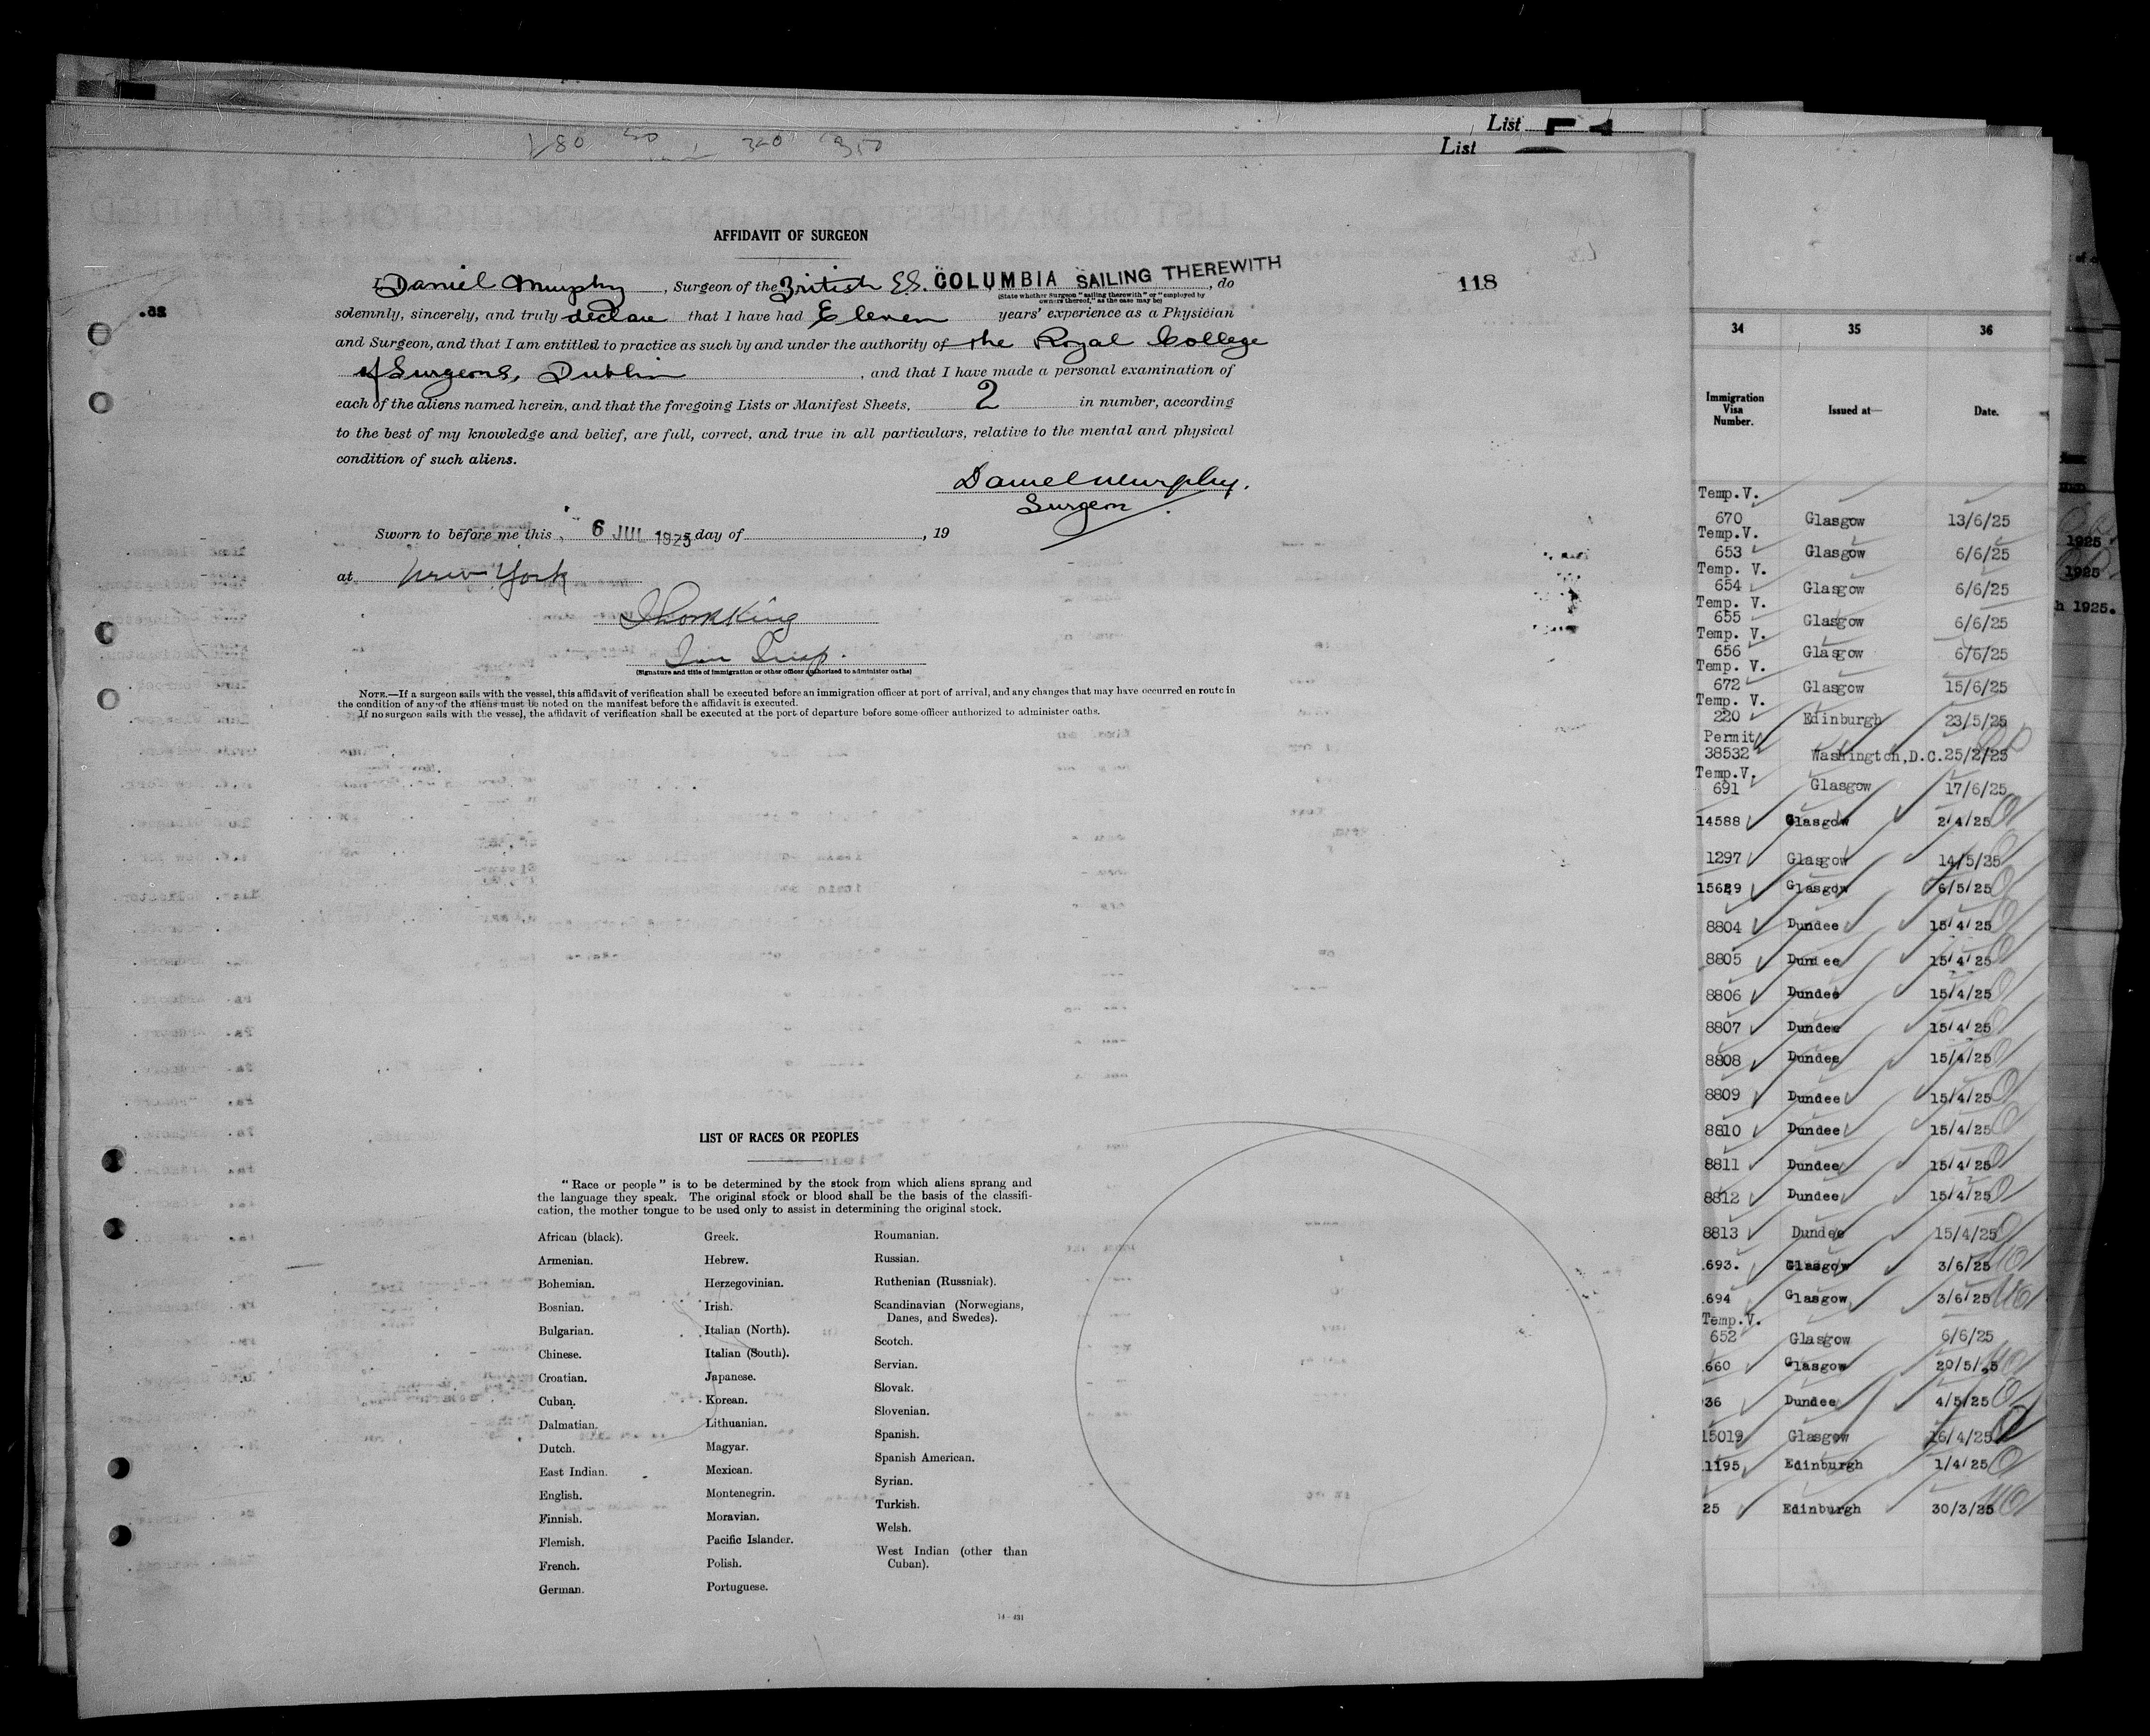 180 50 320 350
List
List
AFFIDAVIT OF SURGEON
118
I Daniel Murphy, Surgeon of the British SS. COLUMBIA SAILING THEREWITH, do
(State whether Surgeon "sailing therewith" or "employed by
owners thereof," as the case may be)
solemnly, sincerely, and truly declare that I have had Eleven years' experience as a Physician
and Surgeon, and that I am entitled to practice as such by and under the authority of the Royal College
of Surgeons, Dublin, and that I have made a personal examination of
each of the aliens named herein, and that the foregoing Lists or Manifest Sheets, 2 in number, according
to the best of my knowledge and belief, are full, correct, and true in all particulars, relative to the mental and physical
condition of such aliens.
Daniel Murphy.
Surgeon
Sworn to before me this 6 JUL 1925 day of , 19
at New York
(Signature and title of immigration or other officer authorized to administer oaths)
NOTE.—If a surgeon sails with the vessel, this affidavit of verification shall be executed before an immigration officer at port of arrival, and any changes that may have occurred en route in
the condition of any of the aliens must be noted on the manifest before the affidavit is executed.
If no surgeon sails with the vessel, the affidavit of verification shall be executed at the port of departure before some officer authorized to administer oaths.
LIST OF RACES OR PEOPLES
"Race or people" is to be determined by the stock from which aliens sprang and
the language they speak. The original stock or blood shall be the basis of the classifi-
cation, the mother tongue to be used only to assist in determining the original stock.
African (black).
Armenian.
Bohemian.
Bosnian.
Bulgarian.
Chinese.
Croatian.
Cuban.
Dalmatian.
Dutch.
East Indian.
English.
Finnish.
Flemish.
French.
German.
Greek.
Hebrew.
Herzegovinian.
Irish.
Italian (North).
Italian (South).
Japanese.
Korean.
Lithuanian.
Magyar.
Mexican.
Montenegrin.
Moravian.
Pacific Islander.
Polish.
Portuguese.
Roumanian.
Russian.
Ruthenian (Russniak).
Scandinavian (Norwegians,
Danes, and Swedes).
Scotch.
Servian.
Slovak.
Slovenian.
Spanish.
Spanish American.
Syrian.
Turkish.
Welsh.
West Indian (other than
Cuban).
14—431
34 35 36
Immigration
Visa
Number.
Issued at—
Date.
Temp.V.
670 Glasgow 13/6/25
Temp.V.
653 Glasgow 6/6/25
Temp. V.
654 Glasgow 6/6/25
Temp. V.
655 Glasgow 6/6/25
Temp. V.
656 Glasgow 6/6/25
Temp. V.
672 Glasgow 15/6/25
Temp. V.
220 Edinburgh 23/5/25
Permit
38532 Washington,D.C. 25/2/25
Temp.V.
691 Glasgow 17/6/25
14588 Glasgow 2/4/25
1297 Glasgow 14/5/25
15689 Glasgow 6/5/25
8804 Dundee 15/4/25
8805 Dundee 15/4/25
8806 Dundee 15/4/25
8807 Dundee 15/4/25
8808 Dundee 15/4/25
8809 Dundee 15/4/25
8810 Dundee 15/4/25
8811 Dundee 15/4/25
8812 Dundee 15/4/25
8813 Dundee 15/4/25
693. Glasgow 3/6/25
694 Glasgow 3/6/25
Temp.V.
652 Glasgow 6/6/25
660 Glasgow 20/5/25
36 Dundee 4/5/25
15019 Glasgow 16/4/25
1195 Edinburgh 1/4/25
25 Edinburgh 30/3/25
1925
1925
h 1925.